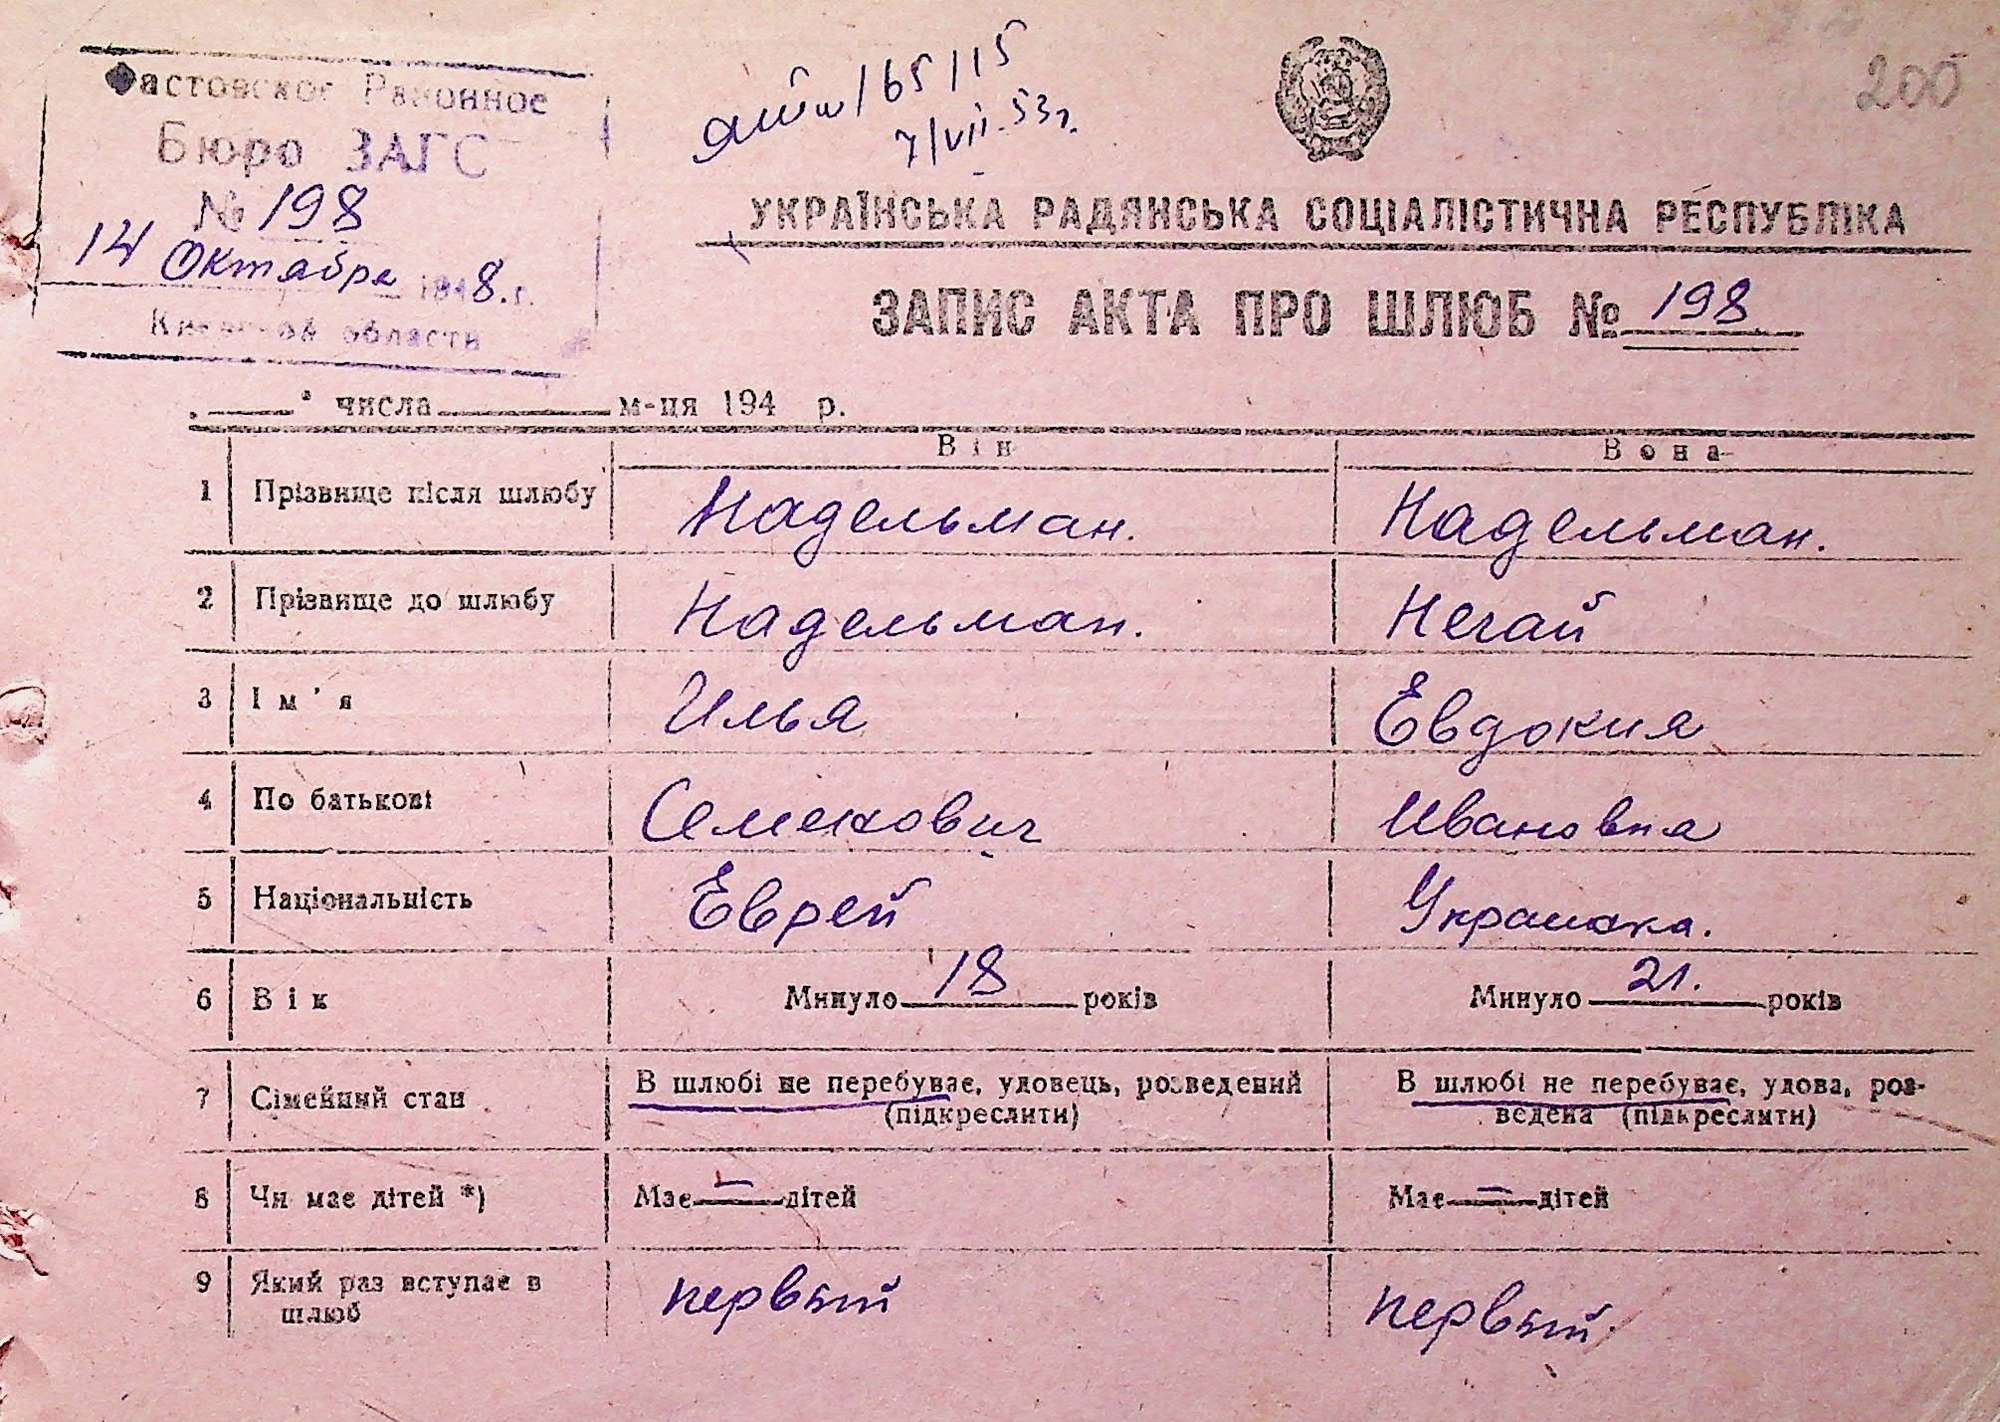 Фастовское Районное
Бюро ЗАГС
№ 198
14 Октября 1948. г.
Киевской области
165/15
7/VII-53г.
200
УКРАЇНСЬКА РАДЯНСЬКА СОЦІАЛІСТИЧНА РЕСПУБЛІКА
ЗАПИС АКТА ПРО ШЛЮБ № 198
" числа м-ця 194 р.
Він Вона
1 Прізвище після шлюбу Надельман. Надельман.
2 Прізвище до шлюбу Надельман. Негай
3 Ім'я Илья Евдокия
4 По батькові Семенович Ивановна
5 Національність Еврей Украинка.
6 Вік Минуло 18 років Минуло 21. років
7 Сімейний стан В шлюбі не перебуває, удовець, розведений В шлюбі не перебуває, удова, роз-
(підкреслити) ведена (підкреслити)
8 Чи має дітей *) Має — дітей Має — дітей
9 Який раз вступає в первый первый
шлюб